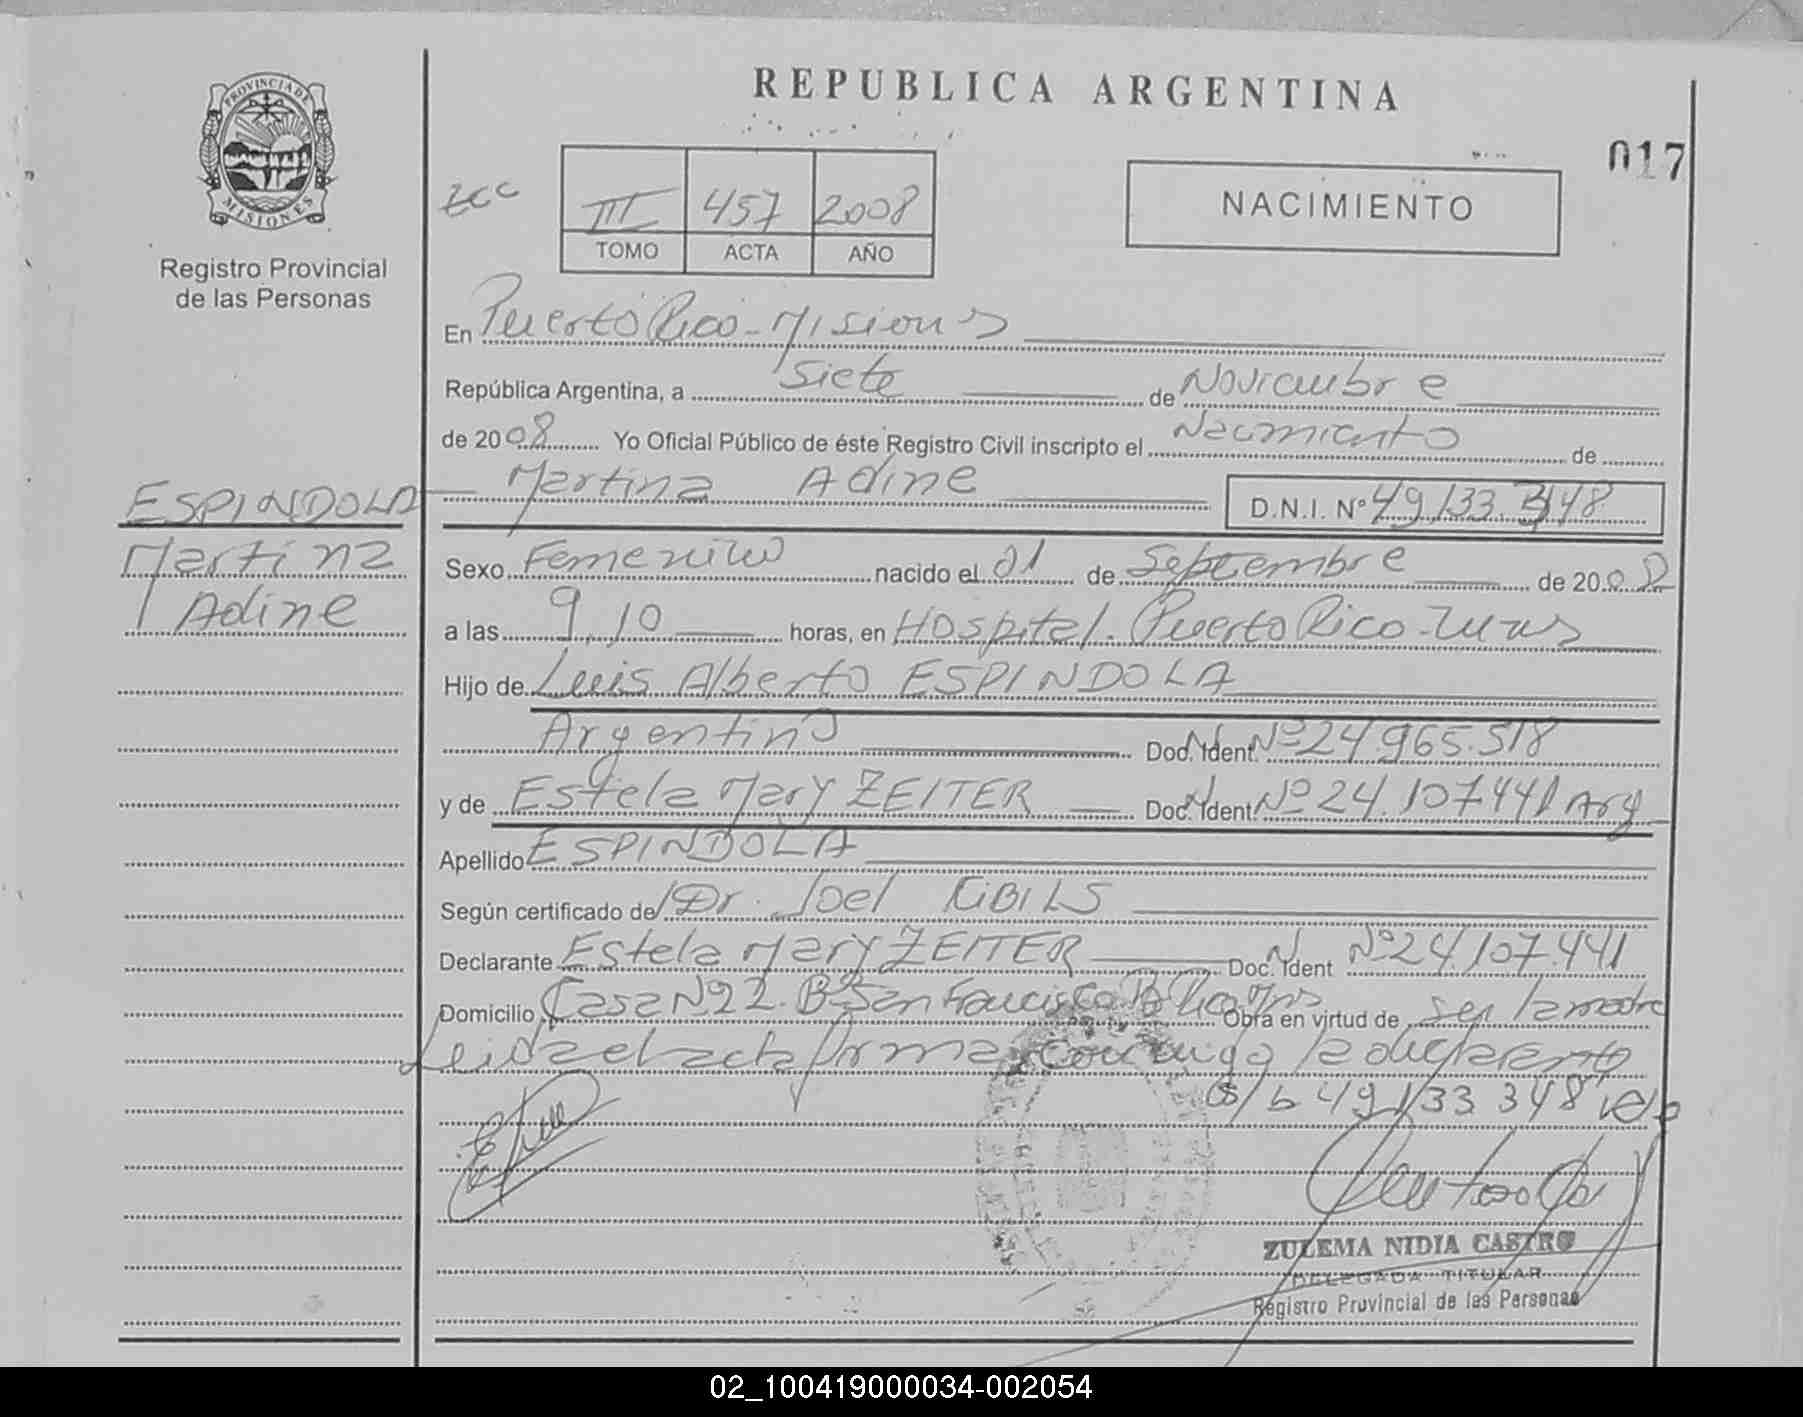 REPUBLICA ARGENTINA
017
PROVINCIA DE
MISIONES
Registro Provincial
de las Personas
III 457 2008
TOMO ACTA AÑO
NACIMIENTO
En Puerto Rico - Misiones
República Argentina, a Siete de Noviembre
de 2008 Yo Oficial Público de éste Registro Civil inscripto el Nacimiento de
Martina Adine D.N.I. Nº 49133.348
ESPINDOLA
Martina
Adine
Sexo Femenino nacido el 01 de Septiembre de 2008
a las 9,10 horas, en Hospital. Puerto Rico -
Hijo de Luis Alberto ESPINDOLA
Argentino Doc. Ident. Nº 24.965.518
y de Estela Mary ZEITER Doc. Ident. Nº 24.107.441 Arg
Apellido ESPINDOLA
Según certificado de Dr. Joel
Declarante Estela Mary ZEITER Doc. Ident Nº 24.107.441
Domicilio Casa Nº 22. Bº San Francisco Obra en virtud de ser la madre
Leida el acta firma conmigo la declarante
s/b 49133 348
ZULEMA NIDIA CASTRO
DELEGADA TITULAR
Registro Provincial de las Personas
02_100419000034-002054